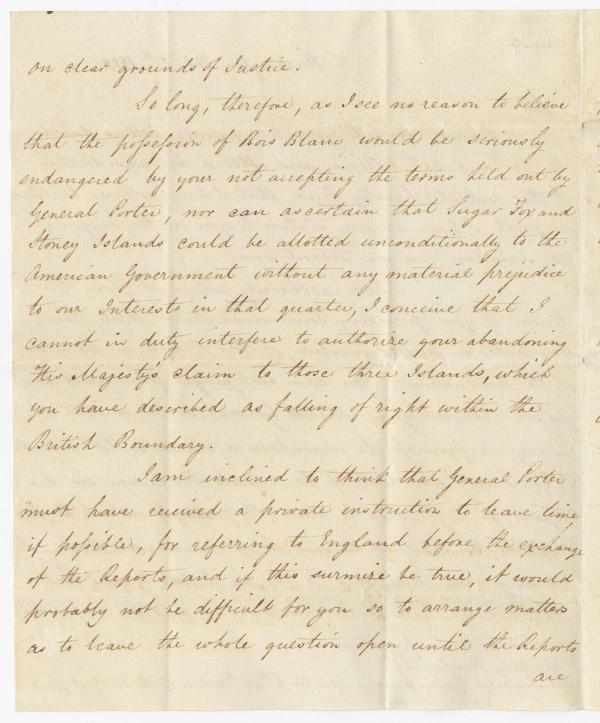 on clear grounds of Justice.
So long, therefore, as I see no reason to believe
that the possession of Bois Blanc would be seriously
endangered by your not accepting the terms held out by
General Porter, nor can ascertain that Sugar Fox and
Stoney Islands could be allotted unconditionally to the
American Government without any material prejudice
to our Interests in that quarter, I conceive that I
cannot in duty interfere to authorize your abandoning
His Majesty's claim to those three Islands, which
you have described as falling of right within the
British Boundary.
I am inclined to think that General Porter
must have received a private instruction to leave time,
if possible, for referring to England before the exchange
of the Reports, and if this surmize be true, it would
probably not be difficult for you so to arrange matters
as to leave the whole question open until the Reports
are